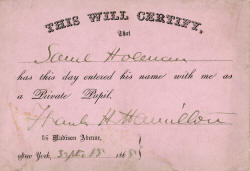 THIS WILL CERTIFY,
That
Saml Holman
has this day entered his name with me as
a Private Pupil.
Frank H. Hamilton
Madison Avenue,
New York, Sept 186